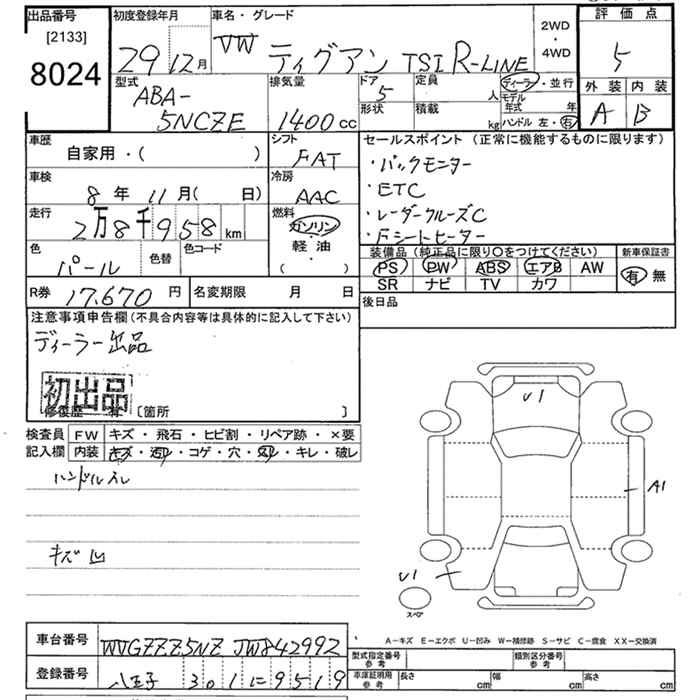 出品番号
[2133]
8024
初度登録年月
29 12月
車名・グレード
VW ティグアン TSI R-LINE
2WD
・
4WD
評価点
5
外装 内装
A B
型式
ABA-
5NCZE
排気量
1400cc
ドア
5
形状
定員
人
積載
kg
ディーラー・並行
モデル
年式 年
ハンドル 左・右
車歴
自家用・( )
シフト
FAT
車検
8年 11月( 日)
冷房
AAC
走行
2万8千958km
燃料
ガソリン
軽油
( ・ )
色
パール
色替
色コード
R券 17,670円
名変期限 月 日
セールスポイント(正常に機能するものに限ります)
・バックモニター
・ETC
・レーダークルーズC
・Fシートヒーター
装備品(純正品に限り○をつけてください)
新車保証書
PS PW ABS エアB AW
SR ナビ TV カワ
有 無
後日品
注意事項申告欄(不具合内容等は具体的に記入して下さい)
ディーラー出品
初出品
修復歴 有 [箇所 ]
検査員 FW キズ・飛石・ヒビ割・リペア跡・×要
記入欄 内装 キズ・汚レ・コゲ・穴・スレ・キレ・破レ
ハンドルスレ
キズ凹
U1
A1
U1
スペア
車台番号 WVGZZZ5NZ JW842992
登録番号 八王子 301 に 9519
A-キズ E-エクボ U-凹み W-補修跡 S-サビ C-腐食 XX-交換済
型式指定番号
参考
類別区分番号
参考
車庫証明用
参考
長さ cm 幅 cm 高さ cm